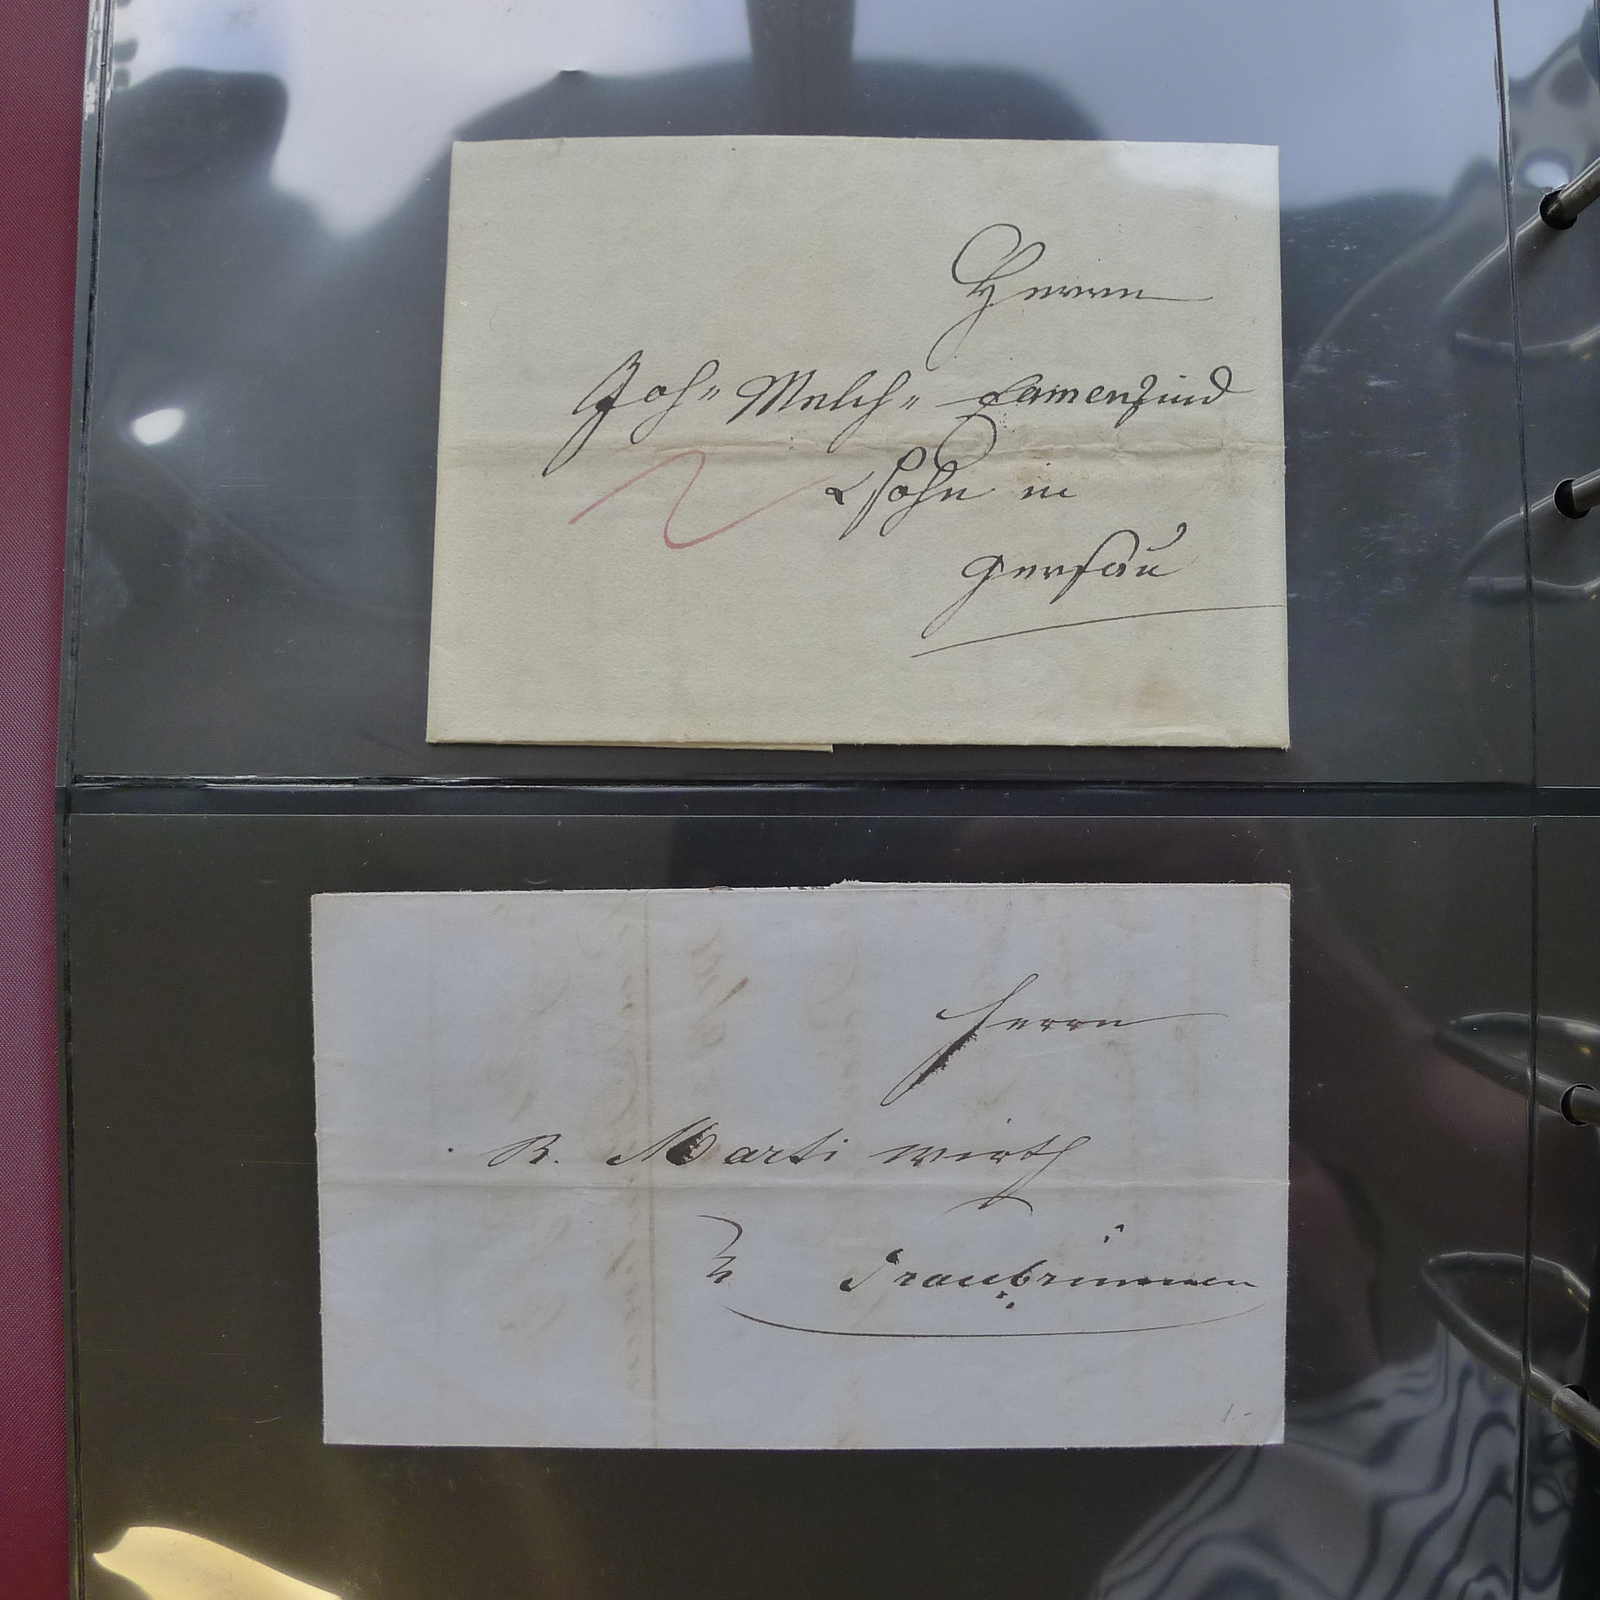 Herrn
Joh" Melch" Camenzind
& Sohn in
Gersau
2
Herrn
R. Marti Wirth
in
Fraubrünnen
1.-